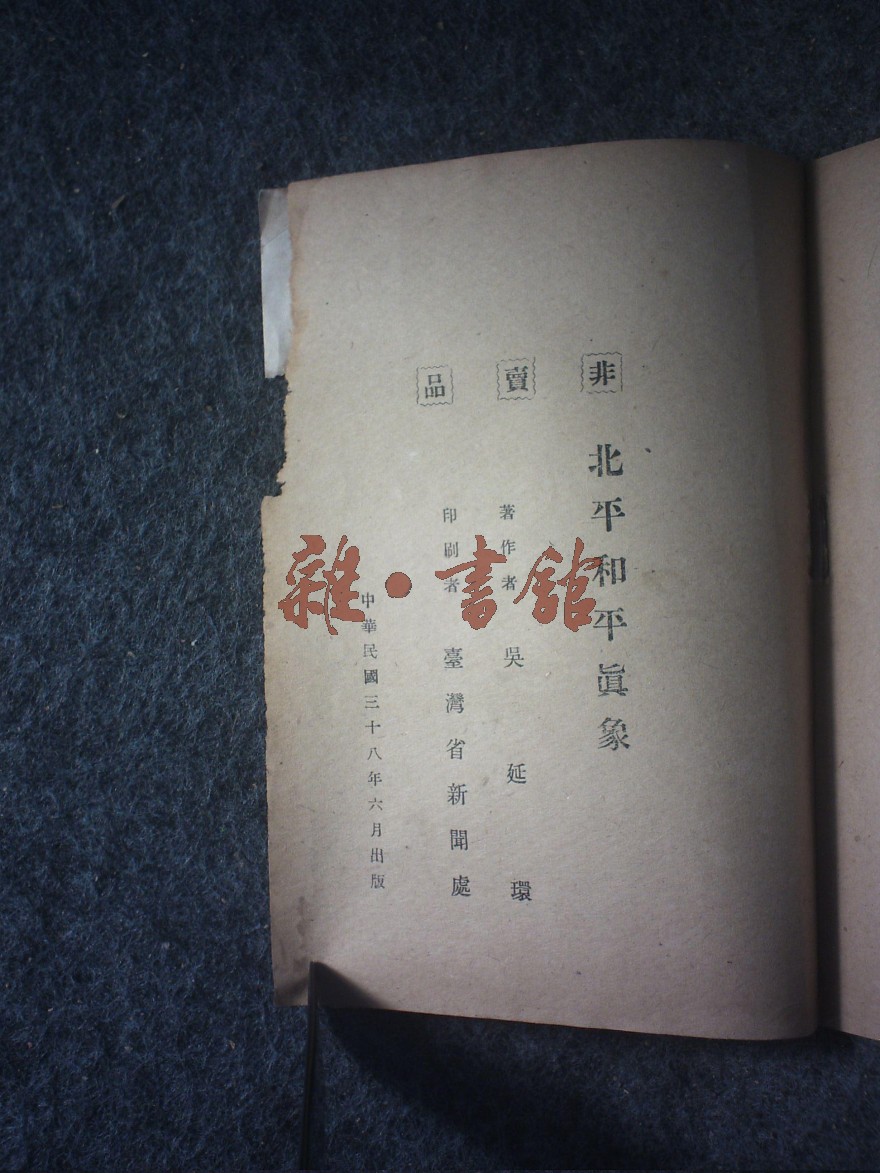 非賣品
北平和平眞象
著作者 吳延環
印刷者 臺灣省新聞處
中華民國三十八年六月出版
雜·書館